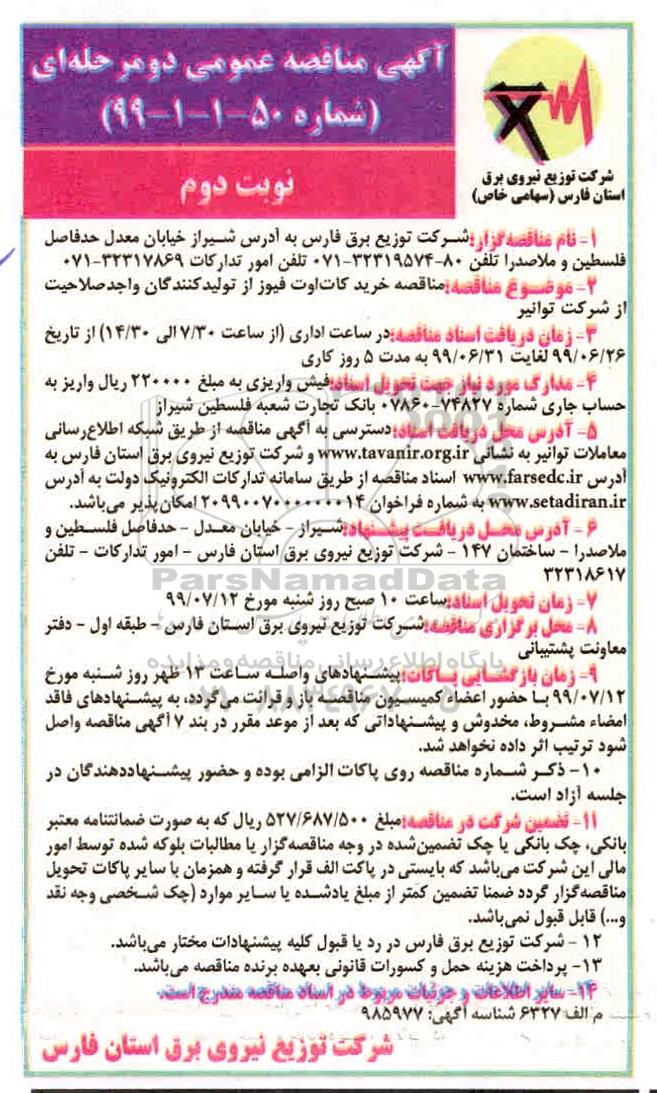 آگهی مناقصه عمومی دومرحله‌ای
(شماره ۵۰-۱-۱-۹۹)
نوبت دوم
شرکت توزیع نیروی برق
استان فارس (سهامی خاص)
۱- نام مناقصه‌گزار: شرکت توزیع برق فارس به آدرس شیراز خیابان معدل حدفاصل
فلسطین و ملاصدرا تلفن ۸۰-۳۲۳۱۹۵۷۴-۰۷۱ تلفن امور تدارکات ۳۲۳۱۷۸۶۹-۰۷۱
۲- موضوع مناقصه: مناقصه خرید کات‌اوت فیوز از تولیدکنندگان واجدصلاحیت
از شرکت توانیر
۳- زمان دریافت اسناد مناقصه: در ساعت اداری (از ساعت ۷/۳۰ الی ۱۴/۳۰) از تاریخ
۹۹/۰۶/۲۶ لغایت ۹۹/۰۶/۳۱ به مدت ۵ روز کاری
۴- مدارک مورد نیاز جهت تحویل اسناد: فیش واریزی به مبلغ ۲۲۰۰۰۰ ریال واریز به
حساب جاری شماره ۷۴۸۲۷-۰۷۸۶۰ بانک تجارت شعبه فلسطین شیراز
۵- آدرس محل دریافت اسناد: دسترسی به آگهی مناقصه از طریق شبکه اطلاع‌رسانی
معاملات توانیر به نشانی www.tavanir.org.ir و شرکت توزیع نیروی برق استان فارس به
آدرس www.farsedc.ir اسناد مناقصه از طریق سامانه تدارکات الکترونیک دولت به آدرس
www.setadiran.ir به شماره فراخوان ۲۰۹۹۰۰۷۰۰۰۰۰۰۰۱۴ امکان‌پذیر می‌باشد.
۶- آدرس محل دریافت پیشنهاد: شیراز - خیابان معدل - حدفاصل فلسطین و
ملاصدرا - ساختمان ۱۴۷ - شرکت توزیع نیروی برق استان فارس - امور تدارکات - تلفن
۳۲۳۱۸۶۱۷
ParsNamadData
۷- زمان تحویل اسناد: ساعت ۱۰ صبح روز شنبه مورخ ۹۹/۰۷/۱۲
۸- محل برگزاری مناقصه: شرکت توزیع نیروی برق استان فارس - طبقه اول - دفتر
معاونت پشتیبانی
پایگاه اطلاع‌رسانی مناقصه و مزایده
۹- زمان بازگشایی پاکات: پیشنهادهای واصله ساعت ۱۳ ظهر روز شنبه مورخ
۹۹/۰۷/۱۲ با حضور اعضاء کمیسیون مناقصه باز و قرائت می‌گردد، به پیشنهادهای فاقد
امضاء مشروط، مخدوش و پیشنهاداتی که بعد از موعد مقرر در بند ۷ آگهی مناقصه واصل
شود ترتیب اثر داده نخواهد شد.
۱۰- ذکر شماره مناقصه روی پاکات الزامی بوده و حضور پیشنهاددهندگان در
جلسه آزاد است.
۱۱- تضمین شرکت در مناقصه: مبلغ ۵۲۷/۶۸۷/۵۰۰ ریال که به صورت ضمانتنامه معتبر
بانکی، چک بانکی یا چک تضمین‌شده در وجه مناقصه‌گزار یا مطالبات بلوکه شده توسط امور
مالی این شرکت می‌باشد که بایستی در پاکت الف قرار گرفته و همزمان با سایر پاکات تحویل
مناقصه‌گزار گردد ضمنا تضمین کمتر از مبلغ یادشده یا سایر موارد (چک شخصی وجه نقد
و...) قابل قبول نمی‌باشد.
۱۲ - شرکت توزیع برق فارس در رد یا قبول کلیه پیشنهادات مختار می‌باشد.
۱۳- پرداخت هزینه حمل و کسورات قانونی بعهده برنده مناقصه می‌باشد.
۱۴- سایر اطلاعات و جزئیات مربوط در اسناد مناقصه مندرج است.
م الف ۶۳۲۷ شناسه آگهی: ۹۸۵۹۷۷
شرکت توزیع نیروی برق استان فارس